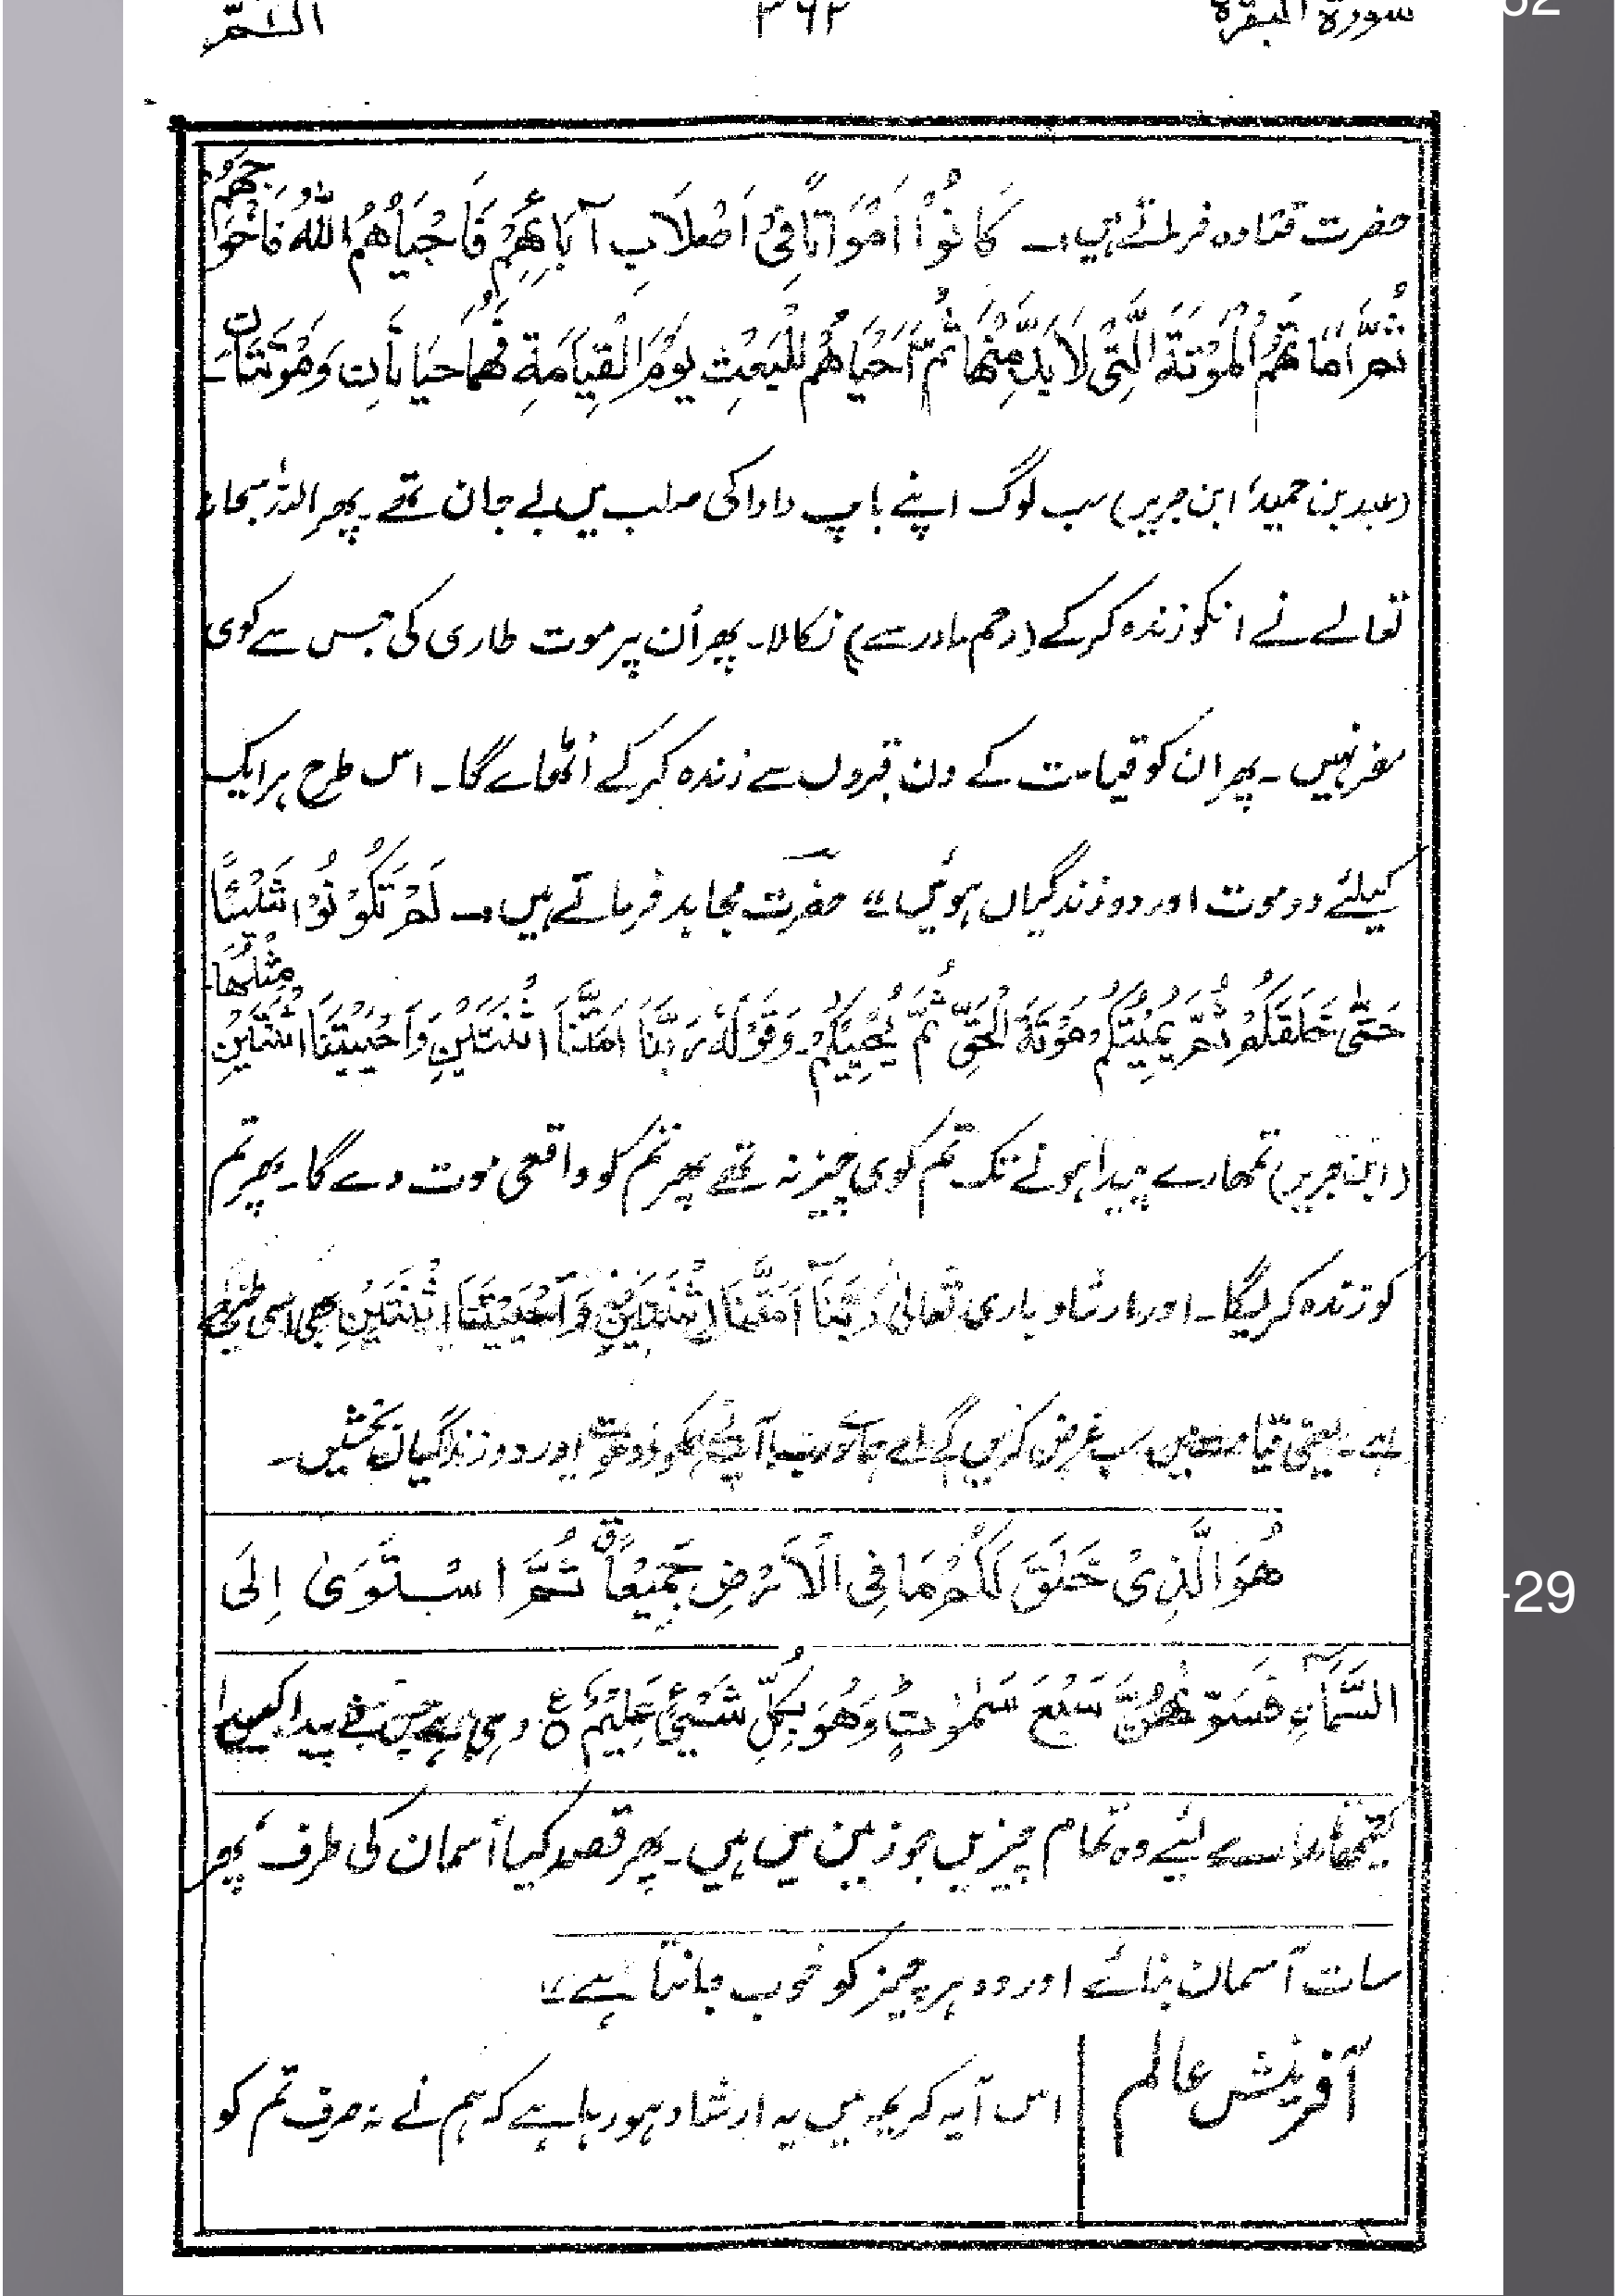 سورة البقرة ۳۶۲ الٓــمّٓ
62
حضرت قتادہ فرماتے ہیں۔ كَانُوْا اَمْوَاتًا فِیْ اَصْلَابِ آبَائِهِمْ فَاَحْيَاهُمُ اللّٰهُ فَاَخْرَجَهُمْ
ثُمَّ اَمَاتَهُمُ الْمَوْتَةَ الَّتِیْ لَا بُدَّ مِنْهَا ثُمَّ اَحْيَاهُمْ لِلْبَعْثِ يَوْمَ الْقِيَامَةِ فَهُمَا حَيَاتَانِ وَمَوْتَتَانِ۔
(عبد بن حمید، ابن جریر) سب لوگ اپنے باپ دادا کی صلب میں بے جان تھے۔ پھر اللہ سبحانہ
تعالے نے انکو زندہ کرکے (رحم مادر سے) نکالا۔ پھر اُن پر موت طاری کی جس سے کوی
مفر نہیں۔ پھر ان کو قیامت کے دن قبروں سے زندہ کرکے اُٹھاے گا۔ اس طرح ہر ایک
کیلئے دو موت اور دو زندگیاں ہوئیں" حضرت مجاہد فرماتے ہیں۔ لَمْ تَكُوْنُوْا شَيْئًا
حَتّٰی خَلَقَكُمْ ثُمَّ يُمِيْتُكُمْ مَوْتَةَ الْحَقِّ ثُمَّ يُحْيِيْكُمْ۔ وَقَوْلُهٗ رَبَّنَا اَمَتَّنَا اثْنَتَيْنِ وَاَحْيَيْتَنَا اثْنَتَيْنِ مِثْلُهَا۔
(ابن جریر) تمھارے پیدا ہونے تک تم کوی چیز نہ تھے پھر تم کو واقعی موت دے گا۔ پھر تم
کو زندہ کریگا۔ اور ارشاد باری تعالیٰ رَبَّنَا اَمَتَّنَا اثْنَتَيْنِ وَاَحْيَيْتَنَا اثْنَتَيْنِ بھی اسی طرح
ہے۔ یعنی قیامت میں سب عرض کریں گے اے ہمارے رب آپ نے ہمکو دو موت اور دو زندگیاں بخشیں۔
هُوَ الَّذِیْ خَلَقَ لَكُمْ مَا فِی الْاَرْضِ جَمِيْعًا ق ثُمَّ اسْتَوٰی اِلَی
-29
السَّمَآءِ فَسَوّٰىهُنَّ سَبْعَ سَمٰوٰتٍ ط وَهُوَ بِكُلِّ شَيْءٍ عَلِيْمٌ ع وہی ہے جس نے پیدا کیں
تمھارے لئے وہ تمام چیزیں جو زمین میں ہیں۔ پھر قصد کیا آسمان کی طرف، پھر
سات آسمان بنائے اور وہ ہر چیز کو خوب جانتا ہے"
آفرینش عالم
اس آیہ کریمہ میں یہ ارشاد ہو رہا ہے کہ ہم نے نہ صرف تم کو